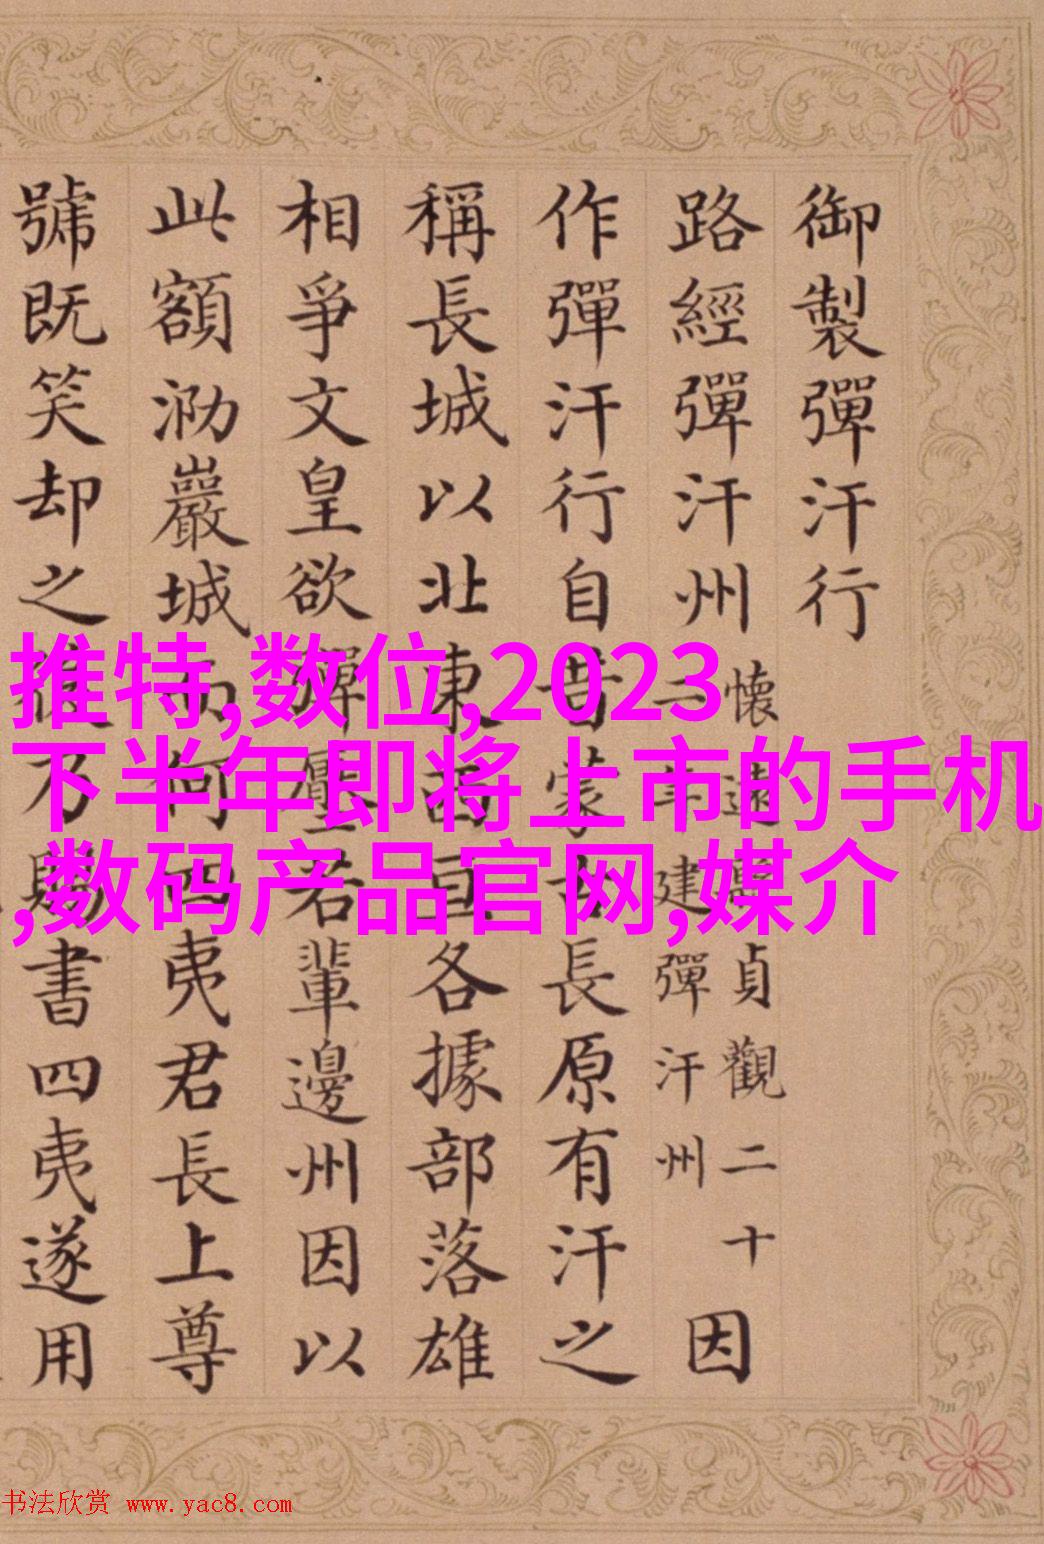 御製彈汗行
路經彈汗州
懷遠貞觀二十
二年建彈汗州
因
作彈汗行自昔蒙古長原有汗之
稱長城以北東西亘各據部落雄
相爭文皇欲彈壓若輩邊州因以
此額泐巖城而何四夷君長上尊
號既笑却之乃賜書四夷遂用
推特,数位,2023
下半年即将上市的手机
,数码产品官网,媒介
书法欣赏 www.yac8.com